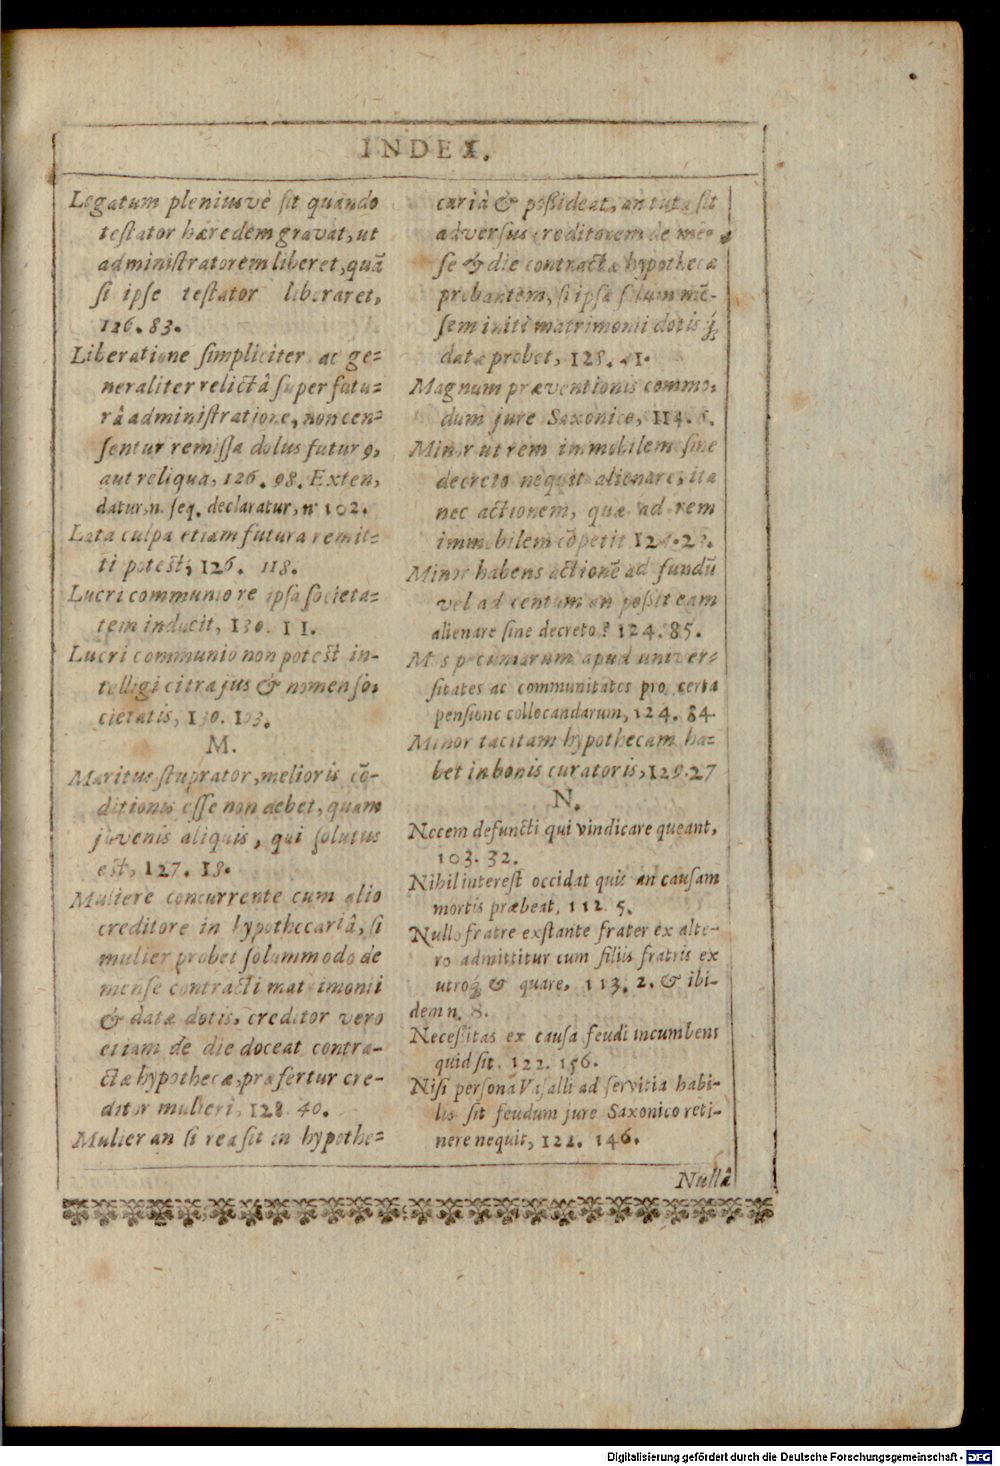 INDEX.
Legatum plenius vè ſit quando
teſtator hæredem gravat, ut
adminiſtratorem liberet, quã
ſi ipſe teſtator liberaret,
126. 83.
Liberatione ſimpliciter ac ge=
neraliter relictâ ſuper futu=
râ adminiſtratione, non cen=
ſentur remiſſa dolus futurꝰ,
aut reliqua, 126. 98. Exten,
datur, n. ſeq. declaratur, nꝰ 102.
Lata culpa etiam futura remit=
ti poteſt, 126. 118.
Lucri communio re ipſa ſocieta=
tem inducit, 130. 11.
Lucri communio non poteſt in-
telligi citra jus & nomen ſo,
cietatis, 130. 103.
M.
Maritus ſtuprator, melioris cõ-
ditionis eſſe non debet, quam
juvenis aliquis, qui ſolutus
eſt, 127. 18.
Muliere concurrente cum alio
creditore in hypothecariâ, ſi
mulier probet ſolummodo de
menſe contracti matrimonii
& datæ dotis, creditor vero
etiam de die doceat contra-
ctæ hypothecæ, præfertur cre-
ditor mulieri, 128. 40.
Mulier an ſi rea ſit in hypothe=
cariâ & poßideat, an tuta ſit
adverſus creditorem de men
ſe & die contractæ hypothecæ
probantem, ſi ipſa ſolum mẽ-
ſem initi matrimonii dotis ꝗ́
datæ probet, 128. 41.
Magnum præventionis commo,
dum jure Saxonico, 114.
Minor ut rem immobilem ſine
decreto nequit alienare, ita
nec actionem, quæ ad rem
immobilem cõpetit
Minor habens actionẽ ad fundũ
vel ad centum an poſſit eam
alienare ſine decreto? 124. 85.
pecuniarum apud univer=
ſitates ac communitates pro certa
penſione collocandarum, 124. 84.
Minor tacitam hypothecam ha=
bet in bonis curatoris, 129. 27
N.
Necem defuncti qui vindicare queant,
103. 32.
Nihil intereſt occidat quis an cauſam
mortis præbeat, 112. 5.
Nullo fratre exſtante frater ex alte-
ro admittitur cum filiis fratris ex
utroꝗ́ & quare, 113. 2. & ibi-
dem n. 8.
Neceſſitas ex cauſa feudi incumbens
quid ſit. 122. 156.
Niſi perſona Vaſalli ad ſervitia habi-
lis ſit feudum jure Saxonico reti-
nere nequit, 122. 146.
Nullâ
Digitalisierung gefördert durch die Deutsche Forschungsgemeinschaft - DFG